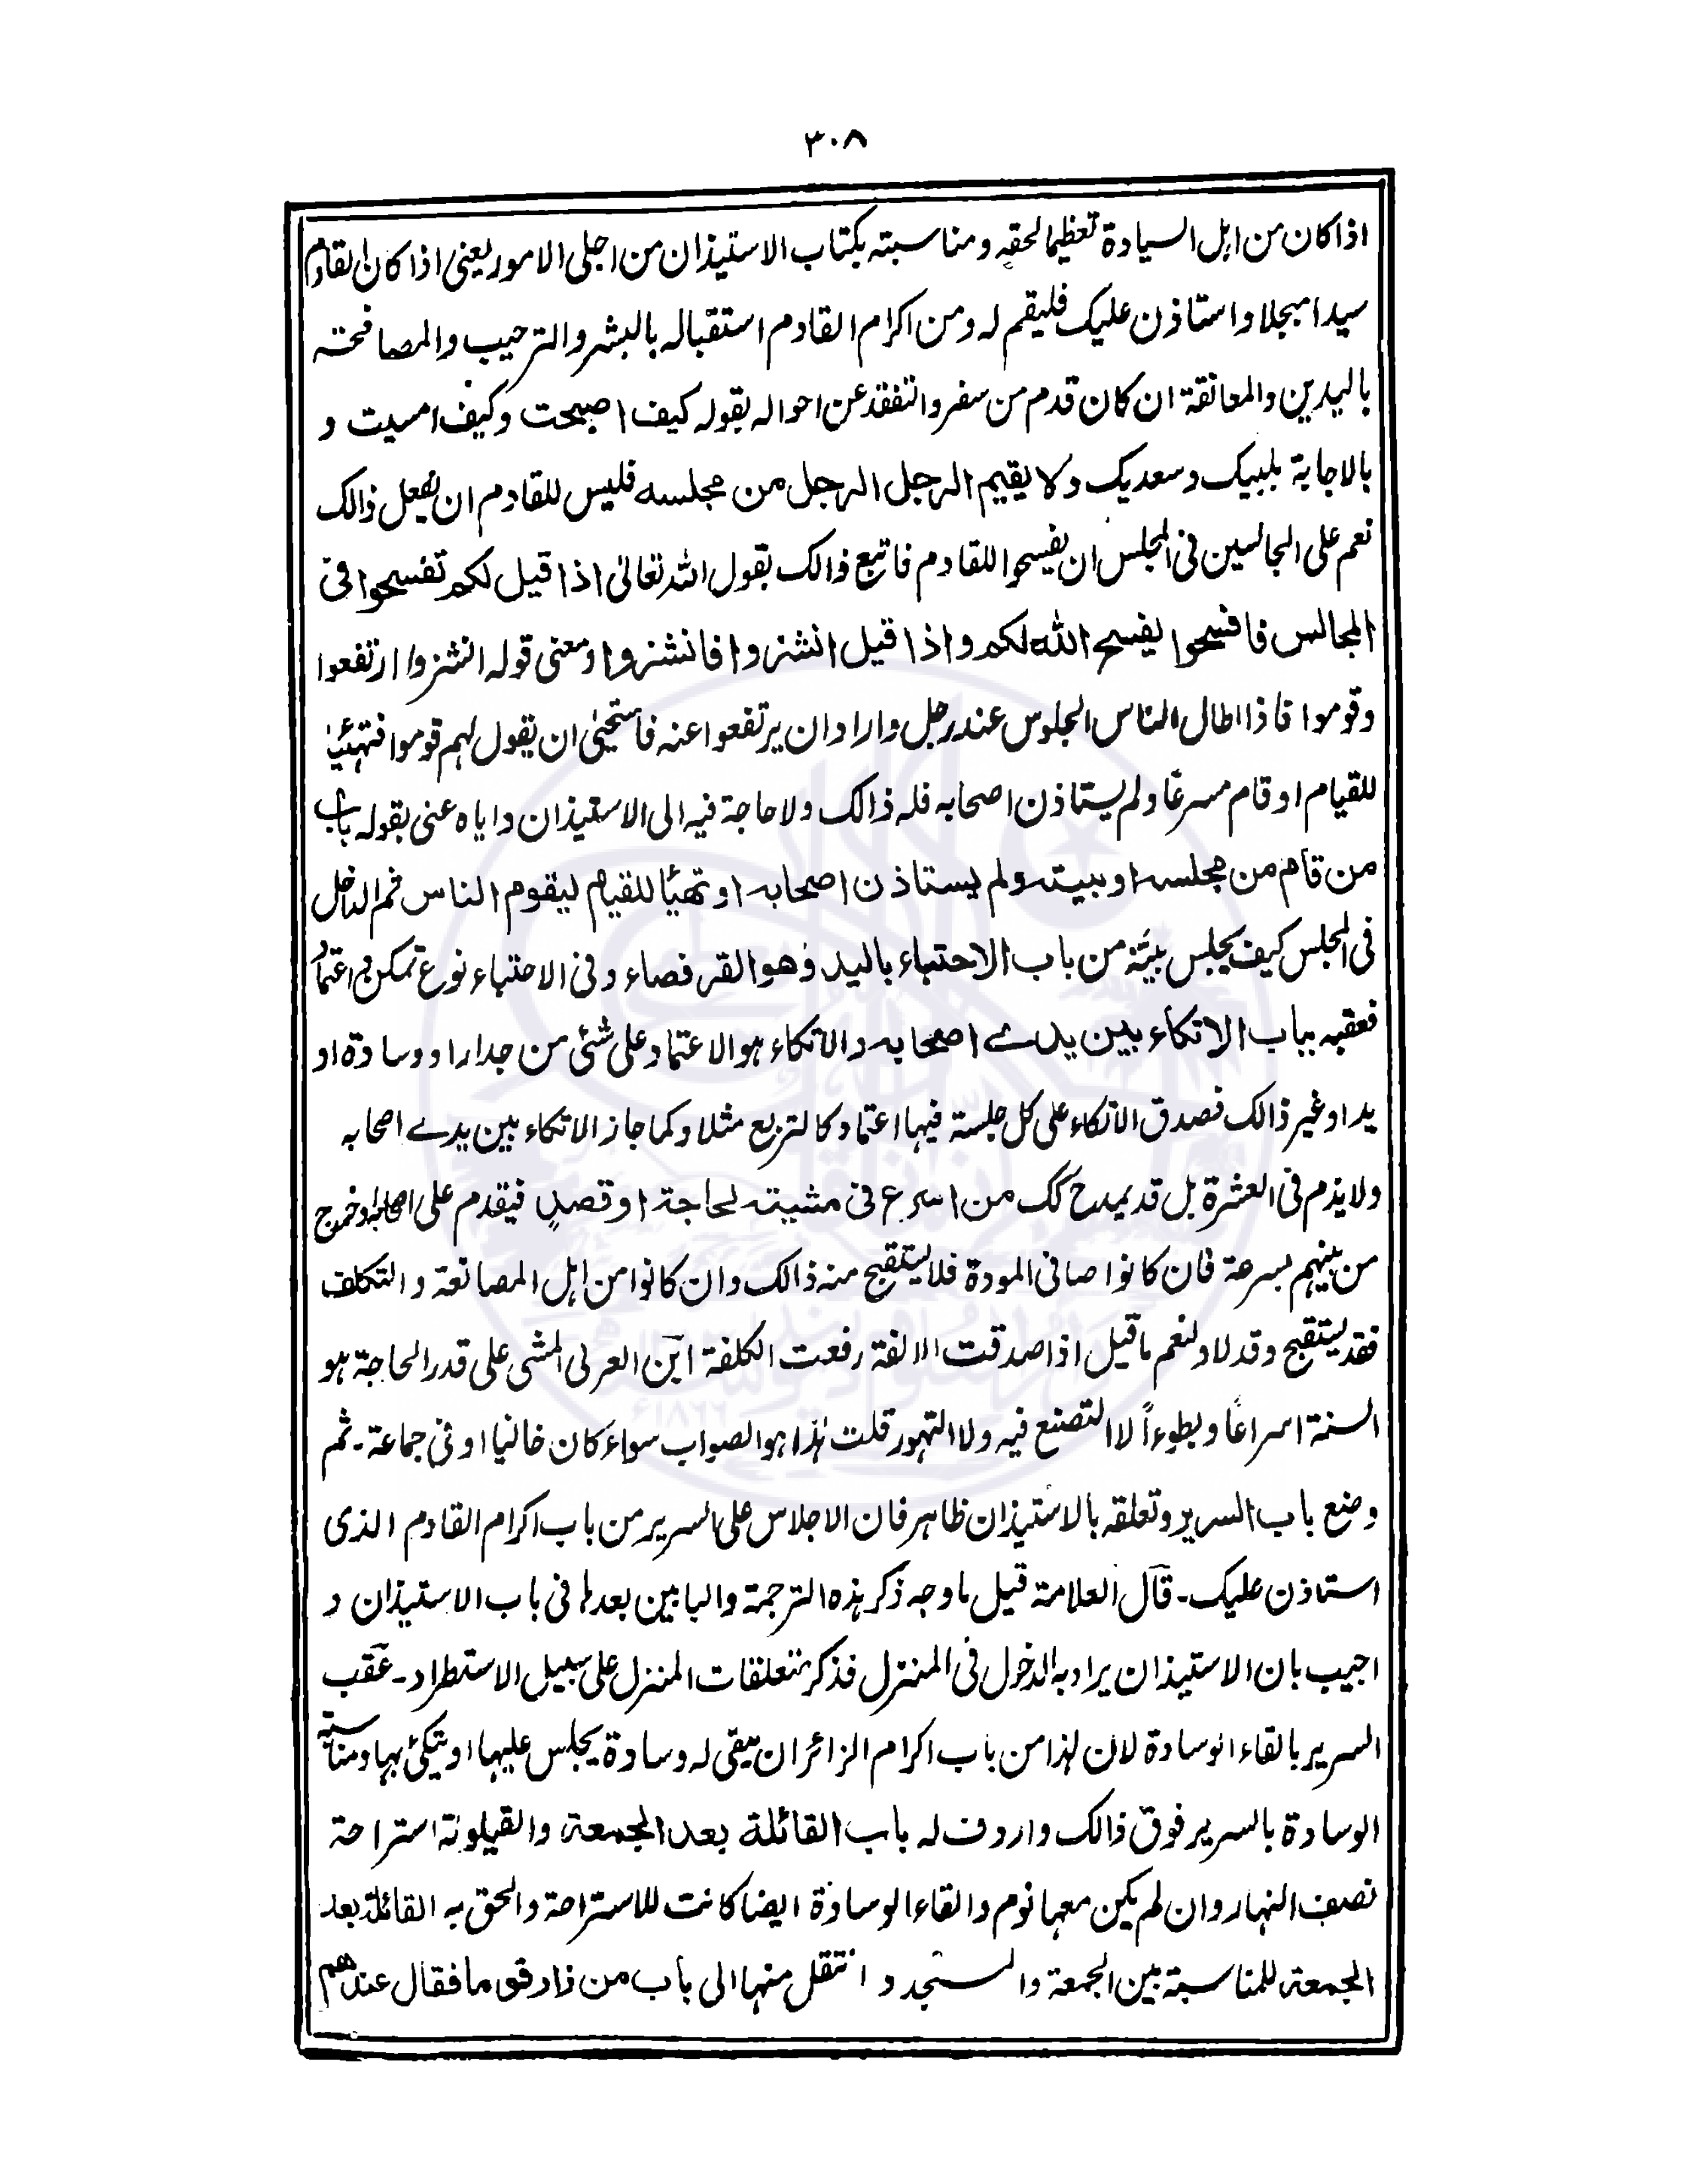 ٣٠٨
اذا كان من اہل السيادة تعظيما لحقہ ومناسبتہ بكتاب الاستيذان من اجلى الامور يعنى اذا كان القادم
سيدا مبجلا واستاذن عليك فليقم لہ ومن اكرام القادم استقبالہ بالبشر والترحيب والمصافحتہ
باليدين والمعانقة ان كان قدم من سفر والتفقد عن احوالہ بقولہ كيف اصبحت وكيف امسيت و
بالاجابة بلبيك وسعديك ولا يقيم الرجل الرجل من مجلسه فليس للقادم ان يفعل ذالك
نعم على الجالسين فى المجلس ان يفسحوا للقادم فاتبع ذالك بقول اللہ تعالىٰ اذا قيل لكم تفسحوا فى
المجالس فافسحوا يفسح اللہ لكم واذا قيل انشزوا فانشزوا ومعنى قولہ انشزوا ارتفعوا
وقوموا فاذا اطال الناس الجلوس عند رجل واراد ان يرتفعوا عنہ فاستحيىٰ ان يقول لہم قوموا فتہيئا
للقيام او قام مسرعًا ولم يستاذن اصحابہ فلہ ذالك ولا حاجة فيہ الى الاستيذان واياه عنى بقولہ باب
من قام من مجلسه او بيته ولم يستاذن اصحابه او تهيئا للقيام ليقوم الناس ثم الداخل
فى المجلس كيف يجلس بيّنہ من باب الاحتباء باليد وهو القرفصاء وفى الاحتباء نوع تمكن و اعتماد
فعقبہ بباب الاتكاء بين يدے اصحابه والاتكاء ہو الاعتماد على شئى من جدار او وسادة او
يد او غير ذالك فصدق الاتكاء على كل جلسة فيہا اعتماد كالتربع مثلا وكما جاز الاتكاء بين يدے اصحابہ
ولا يذم فى العشرة بل قد يمدح كك من اسرع فى مشيته لحاجة او قصدٍ فيقدم على اصحابہ وخرج
من بينہم بسرعة فان كانوا صافى المودة فلا يستقبح منہ ذالك وان كانوا من اہل المصانعة والتكلف
فقد يستقبح وقد لا ولنعم ما قيل اذا صدقت الالفة رفعت الكلفة ابن العربى المشى على قدر الحاجة ہو
السنة اسراعًا وبطوءاً لا التصنع فيہ ولا التہور قلت ہذا ہو الصواب سواء كان خاليا او فى جماعة۔ ثم
وضع باب السرير وتعلقہ بالاستيذان ظاہر فان الاجلاس على السرير من باب اكرام القادم الذى
استاذن عليك۔ قال العلامة قيل ما وجہ ذكر ہذہ الترجمة والبابين بعدہا فى باب الاستيذان و
اجيب بان الاستيذان يراد بہ الدخول فى المنزل فذكر متعلقات المنزل على سبيل الاستطراد۔ عقب
السرير بالقاء الوسادة لان لہذا من باب اكرام الزائر ان يلقى لہ وسادة يجلس عليہا او يتكئ بہا ومناسبتہ
الوسادة بالسرير فوق ذالك واردف لہ باب القائلة بعد الجمعة والقيلولة استراحة
نصف النہار وان لم يكن معہا نوم والقاء الوسادة ايضا كانت للاستراحة والحق بہ القائلة بعد
الجمعة للمناسبة بين الجمعة والمسجد و انتقل منہا الى باب من زار قوما فقال عندهم